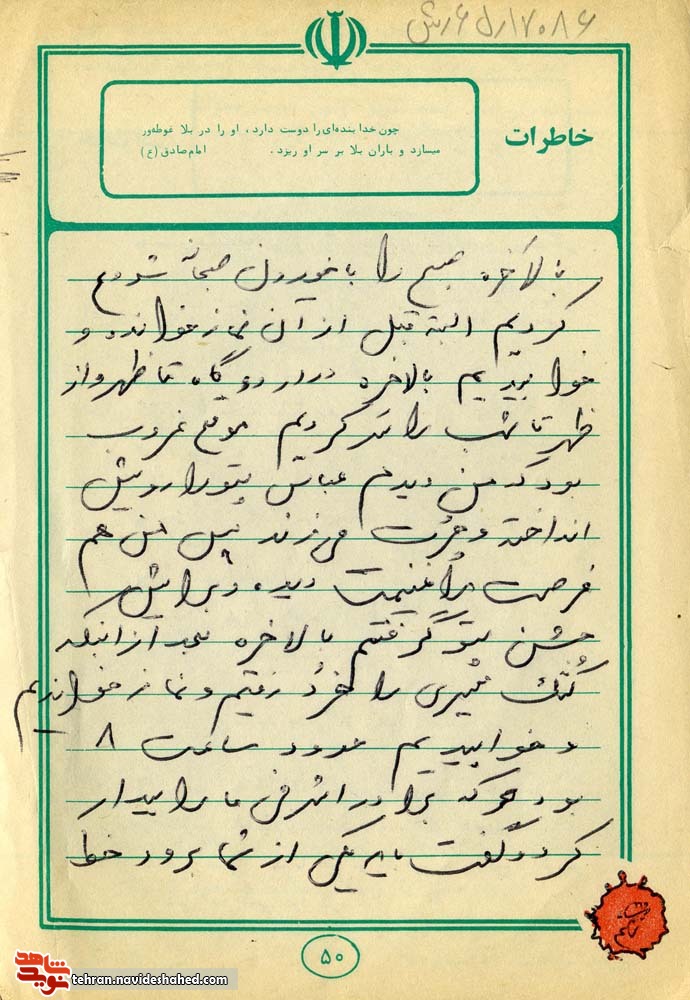 خاطرات
چون خدا بنده‌ای را دوست دارد، او را در بلا غوطه‌ور
میسازد و باران بلا بر سر او ریزد. امام صادق (ع)
بالاخره صبح را با خوردن صبحانه شروع
کردیم البته قبل از آن نماز خوانده و
خوابیدیم بالاخره در اردوگاه تا ظهر و از
ظهر تا شب را تر کردیم موقع غروب
بود که من دیدم عباس پتو را رویش
انداخته و چرت می‌زند پس من هم
فرصت را غنیمت دیده و برایش
جشن پتو گرفتم بالاخره بعد از اینکه
کتک مسیری را خرد رفتیم و نماز خواندیم
و خوابیدیم حدود ساعت ۸
بود که برادر اشرفی ما را بیدار
کرد و گفت باید یکی از شما برود خط
۵۰
نوید شاهد
tehran.navideshahed.com